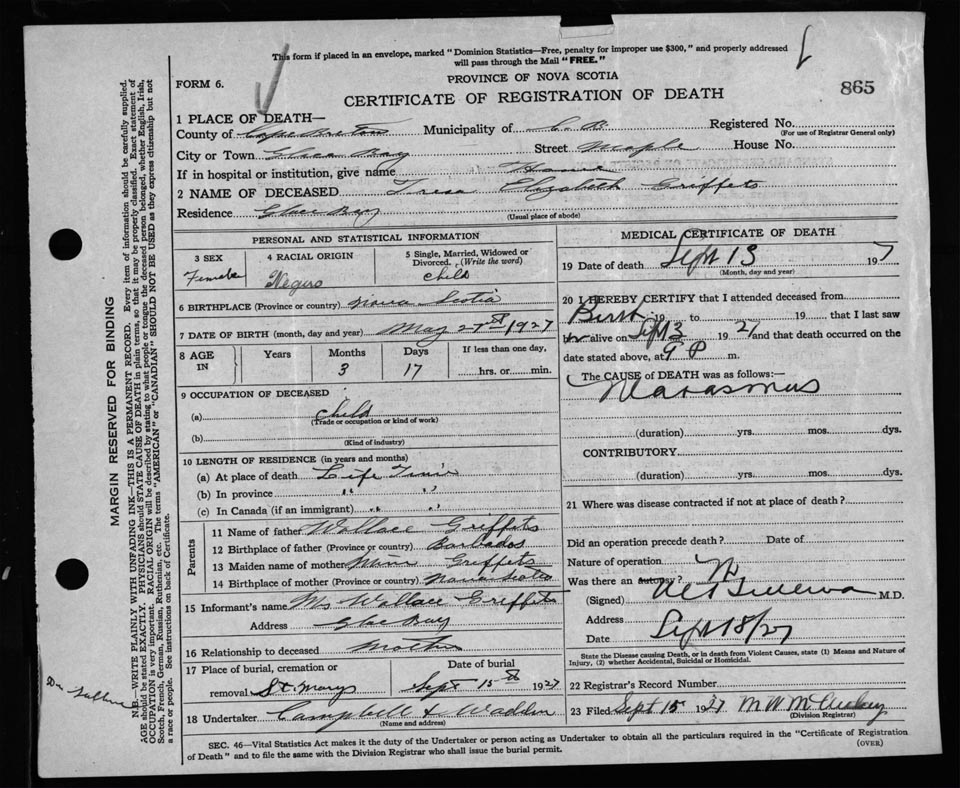 This form if placed in an envelope, marked "Dominion Statistics—Free, penalty for improper use $300," and properly addressed
will pass through the Mail "FREE."
FORM 6.
PROVINCE OF NOVA SCOTIA
865
CERTIFICATE OF REGISTRATION OF DEATH
1 PLACE OF DEATH—
County of Cape Breton Municipality of C. B. Registered No.
(For use of Registrar General only)
City or Town Glace Bay Street Maple House No.
If in hospital or institution, give name Home
2 NAME OF DECEASED Tresa Elizabeth Griffets
Residence Glace Bay
(Usual place of abode)
PERSONAL AND STATISTICAL INFORMATION
3 SEX 4 RACIAL ORIGIN 5 Single, Married, Widowed or
Divorced. (Write the word)
Female Negro Child
6 BIRTHPLACE (Province or country) Nova Scotia
7 DATE OF BIRTH (month, day and year) May 27th 1927
8 AGE IN Years Months Days If less than one day,
3 17 hrs. or min.
9 OCCUPATION OF DECEASED
(a) child
(Trade or occupation or kind of work)
(b)
(Kind of industry)
10 LENGTH OF RESIDENCE (in years and months)
(a) At place of death Life Time
(b) In province " "
(c) In Canada (if an immigrant) " "
Parents
11 Name of father Wallace Griffets
12 Birthplace of father (Province or country) Barbados
13 Maiden name of mother Griffets
14 Birthplace of mother (Province or country) Nova Scotia
15 Informant's name Ms Wallace Griffets
Address Glace Bay
16 Relationship to deceased Mother
17 Place of burial, cremation or Date of burial
removal St Marys Sept 15th 1927
18 Undertaker Campbell & Wadden
(Name and address)
MEDICAL CERTIFICATE OF DEATH
19 Date of death Sept 13 1927
(Month, day and year)
20 I HEREBY CERTIFY that I attended deceased from
Birth 19 to 19 that I last saw
her alive on Sept 3 1927 and that death occurred on the
date stated above, at 9 P m.
The CAUSE of DEATH was as follows:—
Marasmus
(duration) yrs. mos. dys.
CONTRIBUTORY
(duration) yrs. mos. dys.
21 Where was disease contracted if not at place of death?
Did an operation precede death? Date of
Nature of operation
Was there an autopsy? N
(Signed) M.D.
Address
Date Sept 18/27
State the Disease causing Death, or in death from Violent Causes, state (1) Means and Nature of
Injury, (2) whether Accidental, Suicidal or Homicidal.
22 Registrar's Record Number
23 Filed Sept 15 1927 M W
(Division Registrar)
SEC. 46—Vital Statistics Act makes it the duty of the Undertaker or person acting as Undertaker to obtain all the particulars required in the "Certificate of Registration
of Death" and to file the same with the Division Registrar who shall issue the burial permit.
(OVER)
MARGIN RESERVED FOR BINDING
N.B.—WRITE PLAINLY WITH UNFADING INK—THIS IS A PERMANENT RECORD. Every item of information should be carefully supplied.
AGE should be stated EXACTLY. PHYSICIANS should STATE CAUSE OF DEATH in plain terms, so that it may be properly classified. Exact statement of
OCCUPATION is very important. RACIAL ORIGIN will be described by stating to what people or tongue the deceased person belonged, whether English, Irish,
Scotch, French, German, Russian, Ruthenian, etc. The terms "AMERICAN" or "CANADIAN" SHOULD NOT BE USED as they express citizenship but not
a race or people. See instructions on back of Certificate.